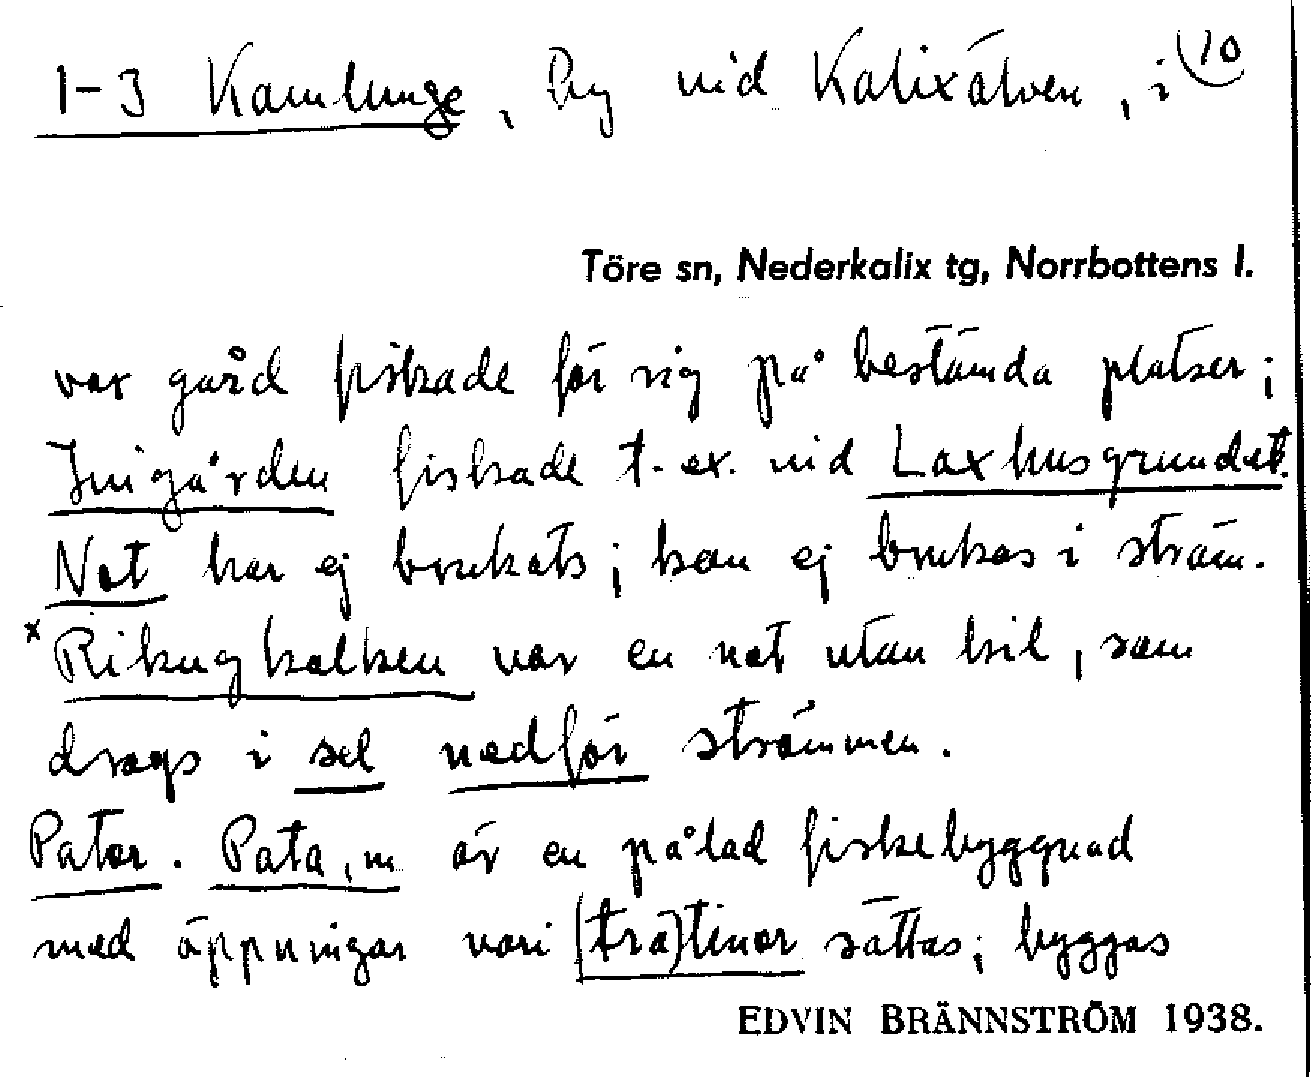 1-3 Kamlunge, by vid Kalixälven, i 10
Töre sn, Nederkalix tg, Norrbottens l.
var gård fiskade för sig på bestämda platser;
Inigården fiskade t. ex. vid Laxhusgrundet.
Not har ej brukats; kan ej brukas i ström.
x Rikugkalken var en not utan kil, som
drogs i sel nedför strömmen.
Pator. Pata, m är en pålad fiskebyggnad
med öppningar vari (trä)tinor sättas; byggas
EDVIN BRÄNNSTRÖM 1938.